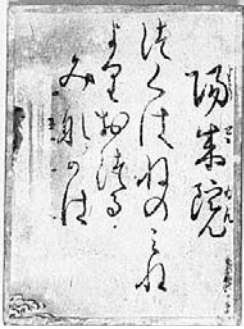 陽成院
つくはねのみね
より落つる
みなのかは